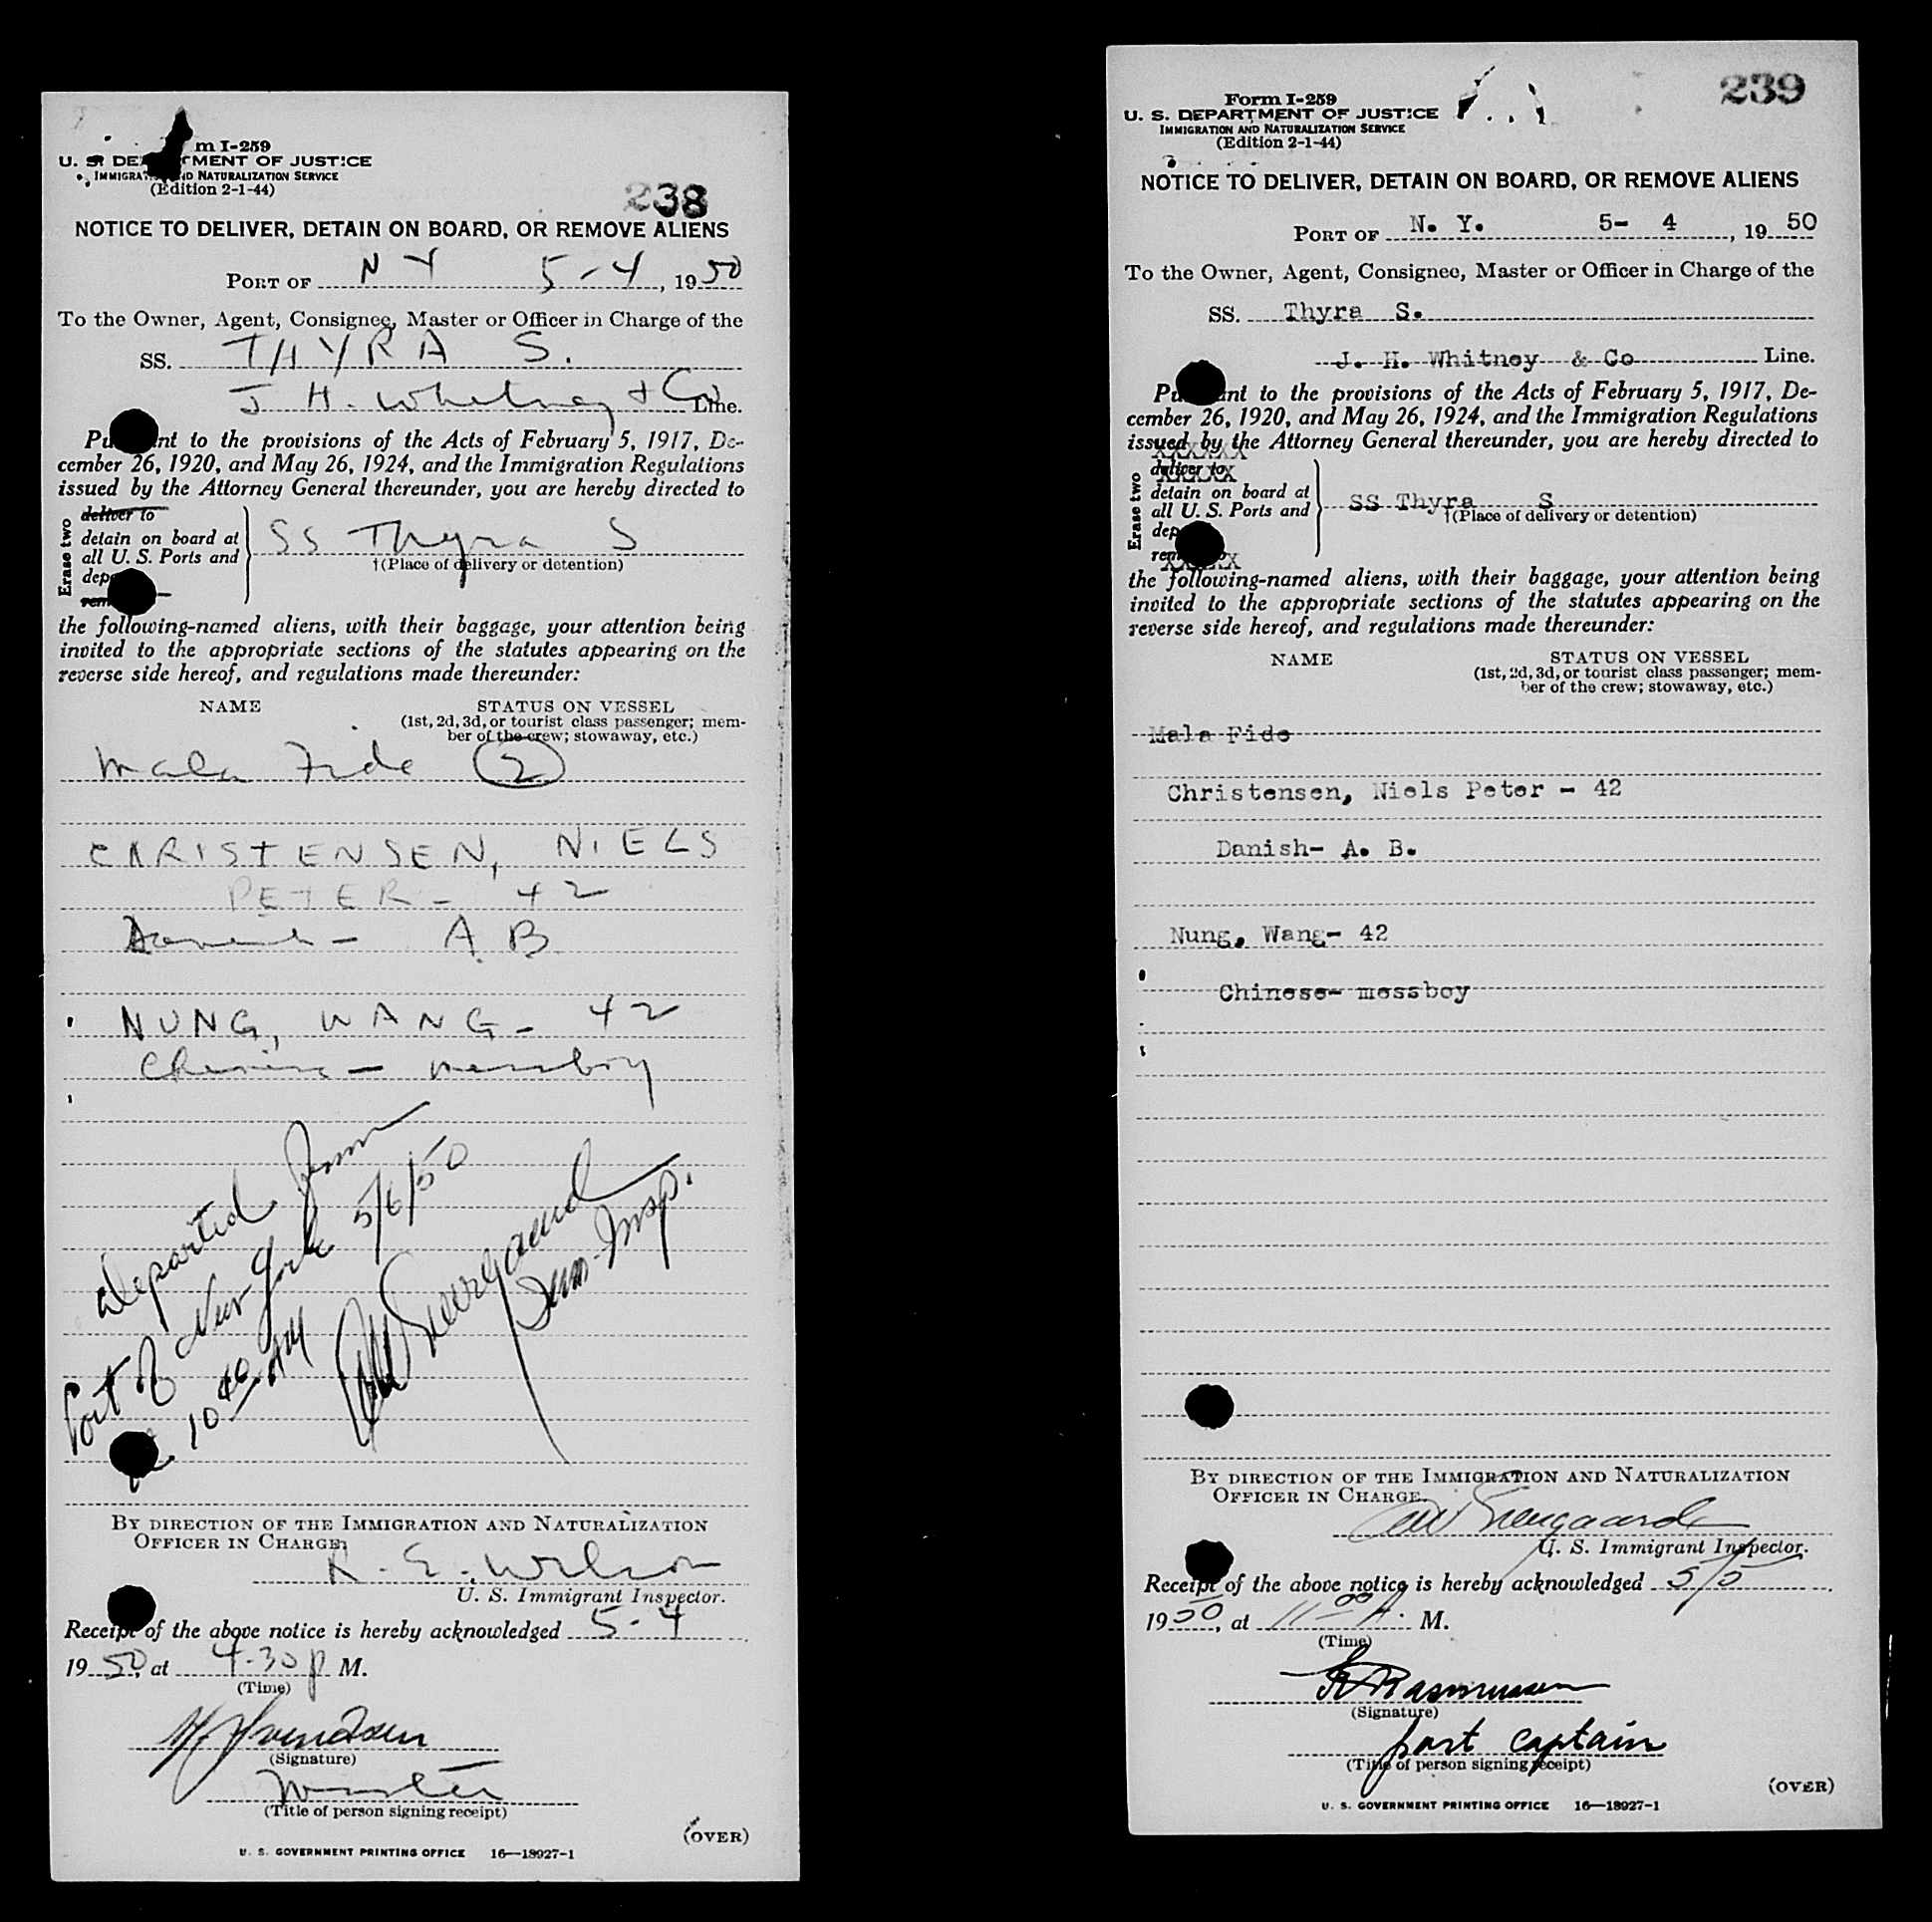 m I-259
U. S. DE TMENT OF JUSTICE
IMMIGRA ND NATURALIZATION SERVICE
(Edition 2-1-44)
238
NOTICE TO DELIVER, DETAIN ON BOARD, OR REMOVE ALIENS
PORT OF N Y 5-4, 1950
To the Owner, Agent, Consignee, Master or Officer in Charge of the
SS. THYRA S.
J. H. Whitney & Co Line.
Pu nt to the provisions of the Acts of February 5, 1917, De-
cember 26, 1920, and May 26, 1924, and the Immigration Regulations
issued by the Attorney General thereunder, you are hereby directed to
Erase two
deliver to
detain on board at
all U. S. Ports and
dep
rem
SS Thyra S
†(Place of delivery or detention)
the following-named aliens, with their baggage, your attention being
invited to the appropriate sections of the statutes appearing on the
reverse side hereof, and regulations made thereunder:
NAME STATUS ON VESSEL
(1st, 2d, 3d, or tourist class passenger; mem-
ber of the crew; stowaway, etc.)
Mala Fide 2
CHRISTENSEN, NIELS
PETER - 42
Danish - A B
NUNG, WANG - 42
Chinese - messboy
Departed from
Port of New York 5/6/50
10 40 AM
Imm. Insp.
BY DIRECTION OF THE IMMIGRATION AND NATURALIZATION
OFFICER IN CHARGE.
R. E. Wilson
U. S. Immigrant Inspector.
Receipt of the above notice is hereby acknowledged 5-4
1950, at 4-30 p M.
(Time)
H. Svendsen
(Signature)
Master
(Title of person signing receipt)
(OVER)
U. S. GOVERNMENT PRINTING OFFICE 16—18927-1
239
Form I-259
U. S. DEPARTMENT OF JUSTICE
IMMIGRATION AND NATURALIZATION SERVICE
(Edition 2-1-44)
NOTICE TO DELIVER, DETAIN ON BOARD, OR REMOVE ALIENS
PORT OF N. Y. 5- 4, 1950
To the Owner, Agent, Consignee, Master or Officer in Charge of the
SS. Thyra S.
J. H. Whitney & Co Line.
Pu nt to the provisions of the Acts of February 5, 1917, De-
cember 26, 1920, and May 26, 1924, and the Immigration Regulations
issued by the Attorney General thereunder, you are hereby directed to
Erase two
deliver to
detain on board at
all U. S. Ports and
dep
rem
SS Thyra S
†(Place of delivery or detention)
the following-named aliens, with their baggage, your attention being
invited to the appropriate sections of the statutes appearing on the
reverse side hereof, and regulations made thereunder:
NAME STATUS ON VESSEL
(1st, 2d, 3d, or tourist class passenger; mem-
ber of the crew; stowaway, etc.)
Mala Fide
Christensen, Niels Peter - 42
Danish- A. B.
Nung, Wang- 42
Chinese- messboy
BY DIRECTION OF THE IMMIGRATION AND NATURALIZATION
OFFICER IN CHARGE.
U. S. Immigrant Inspector.
Receipt of the above notice is hereby acknowledged 5/5
1950, at 11 00 A. M.
(Time)
Rasmussen
(Signature)
port captain
(Title of person signing receipt)
(OVER)
U. S. GOVERNMENT PRINTING OFFICE 16—18927-1